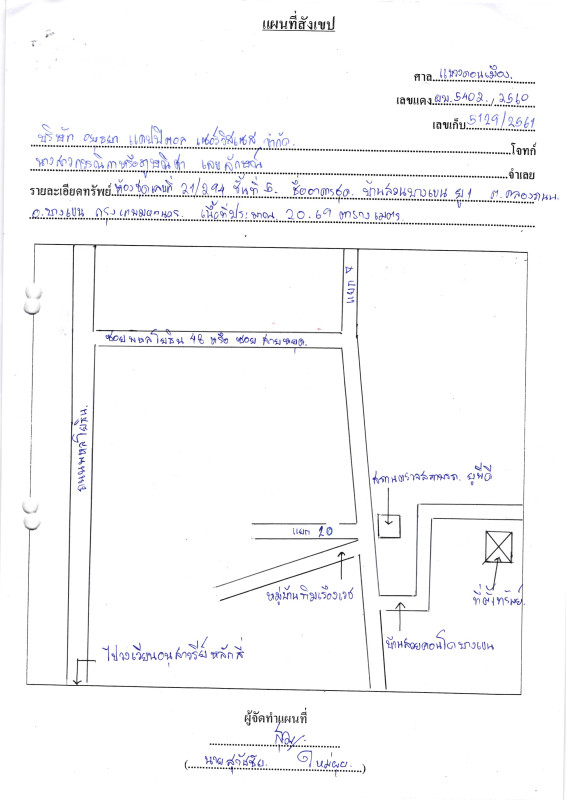 แผนที่สังเขป
ศาล แขวงดอนเมือง
เลขแดง ผบ.5402 /2560
เลขเก็บ 5129/2561
บริษัท อยุธยา แคปปิตอล เซอร์วิสเซส จำกัด. โจทก์
นางสาว เลขลักษณ์ จำเลย
รายละเอียดทรัพย์ ห้องชุดเลขที่ 21/294 ชั้นที่ 5. ชื่ออาคารชุด. บ้านสวนบางเขน ต.คลองถนน
อ.บางเขน กรุงเทพมหานคร. เนื้อที่ประมาณ 20.69 ตารางเมตร
ซอยพหลโยธิน 48 หรือ ซอย สายหยุด.
ถนนพหลโยธิน.
สถานตรวจสภาพรถ.
แยก 20
หมู่บ้าน
ที่ตั้งทรัพย์.
บ้านสวยคอนโดบางเขน
ไปวงเวียนอนุสาวรีย์ หลักสี่
ผู้จัดทำแผนที่
(นาย )